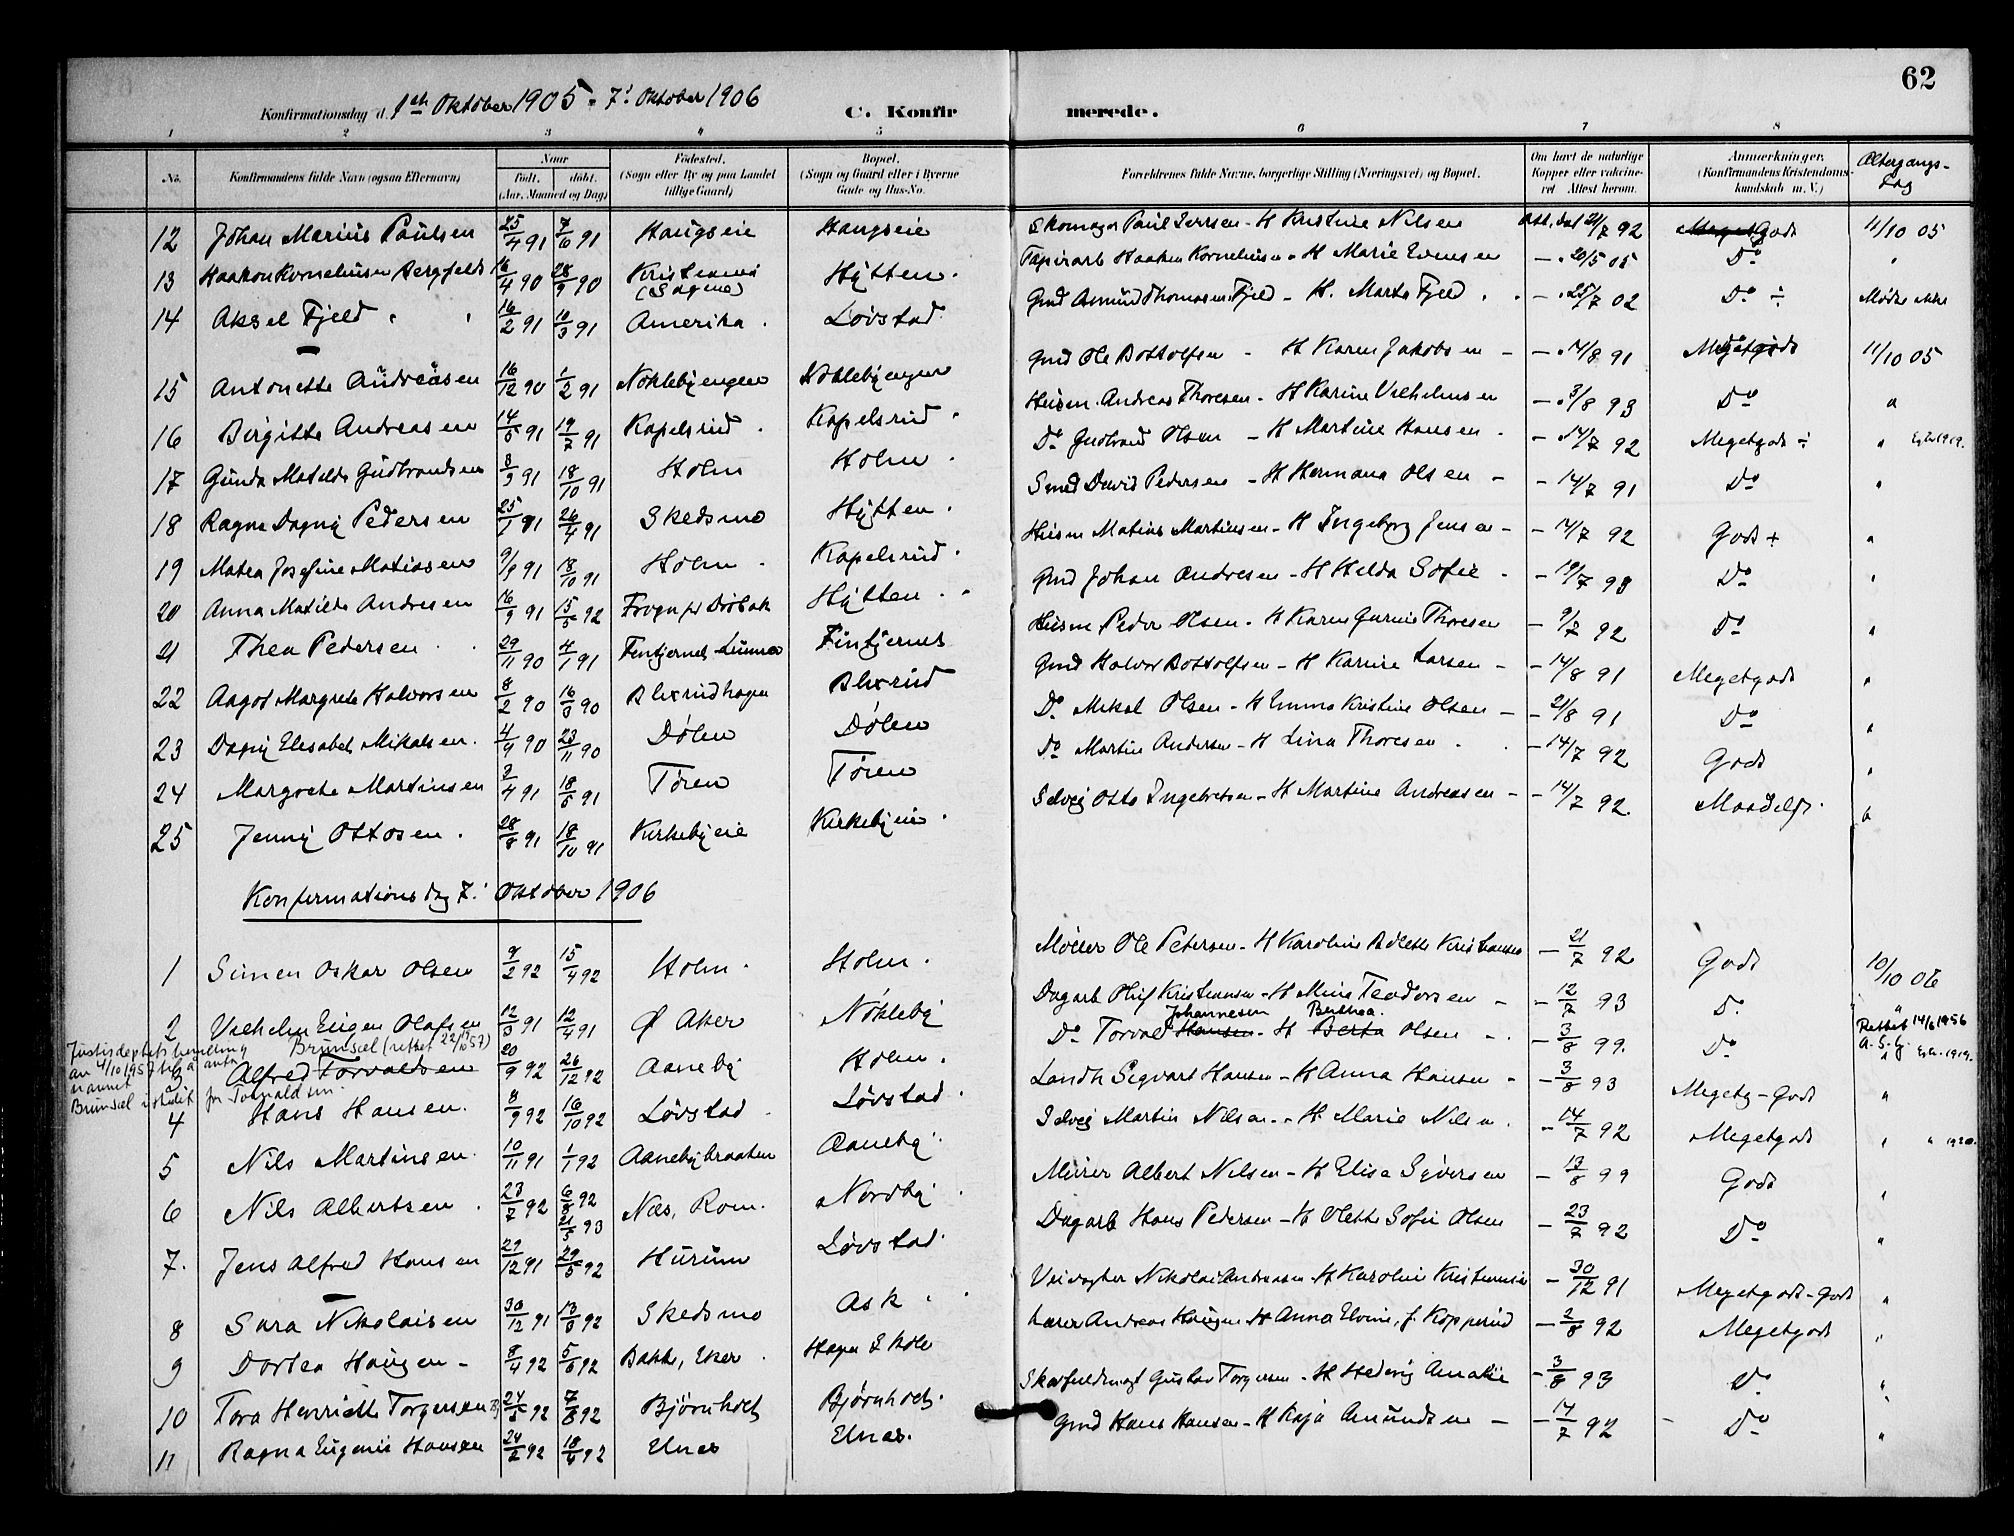 62
Konfirmationsdag d. 1ste Oktober 1905 - 7' Oktober 1906 C. Konfirmerede.
1 2 3 4 5 6 7 8
No. Konfirmandens fulde Navn (ogsaa Efternavn) Naar født. døbt. (Aar, Maaned og Dag) Fødested. (Sogn eller By og paa Landet tillige Gaard) Bopæl. (Sogn og Gaard eller i Byerne Gade og Hus-No. Forældrenes fulde Navne, borgerlige Stilling (Næringsvei) og Bopæl. Om havt de naturlige Kopper eller vaccineret Attest herom. Anmærkninger. (Konfirmandens Kristendomskundskab m. V.) Altergangsdag
12 Johan Marius Paulsen 25/4 91 7/6 91 Haugseie Haugseie Skomager Paul Iversen - H Kristine Nilsen Att. dat 21/7 92 Meget Godt 11/10 05
13 Haakon Kornelinsen Bergfeldt 16/4 90 28/9 90 Kristiania (Sagene) Hytten. Papirarb Haaken Kornelinsen - H Marie Evensen - 20/5 05 Do "
14 Aksel Fjeld 16/2 91 10/3 91 Amerika. Løvstad Gmd Amund Thomasen Fjeld - H. Marte Fjeld - 25/7 02 Do ÷ Mødte ikke
15 Antonette Andreasen 16/12 90 1/2 91 Nøklebyengen Nøklebyengen Gmd Ole Bottolfsen - H Karen Jakobsen - 14/8 91 Megetgodt 11/10 05
16 Birgitte Andreasen 14/5 91 19/7 91 Kapelsrud. Kapelsrud Husm. Andreas Thoresen - H Karine Vilhelmsen - 3/8 93 Do "
17 Gunda Matilde Gudbrandsen 8/9 91 18/10 91 Holm Holm Do Gudbrand Olsen - H Martine Hansen - 14/7 92 Megetgodt ÷ " 1919.
18 Ragna Dagny Pedersen 25/1 91 26/4 91 Skedsmo Hytten. Smed David Pedersen - H Hermana Olsen - 14/7 91 Do "
19 Matea Josefine Matiasen 9/9 91 18/10 91 Holm. Kapelsrud. Husm Matias Martinsen - H Ingeborg Jensen - 14/7 92 Godt + "
20 Anna Matilde Andresen 16/9 91 15/5 92 Frogn pr Drøbak Hytten. Gmd Johan Andresen - H Helda Sofie - 19/7 93 Do "
21 Thea Pedersen 29/11 90 4/1 91 Fintjernet Lunner Fintjernet Husm Peder Olsen - H Karen Gurine Thoresen - 9/7 92 Do "
22 Aagot Margrete Halvorsen 8/2 90 16/3 90 Blexrudhagen Blexrud Gmd Halvor Bottolfsen - H Karine Larsen - 14/8 91 Megetgodt "
23 Dagny Elisabet Mikalsen. 4/9 90 23/11 90 Dølen Dølen Do Mikal Olsen - H Emma Kristine Olsen - 21/8 91 Do "
24 Margrete Martinsen 2/4 91 18/5 91 Tøien Tøien Do Martin Andersen - H Lina Thoresen - 14/7 92 Godt "
25 Jenny Ottosen. 28/8 91 18/10 91 Kirkebyeie Kirkebyeie. Selvej Otto Ingebretsen - H Martine Andreasen - 14/7 92 Maadelig. "
Konfirmationsdag 7' Oktober 1906
1 Simen Oskar Olsen 9/2 92 15/4 92 Holm. Holm. Møller Ole Petersen - H Karoline Bolette Kristiansen - 21/7 92 Godt 10/10 06
2 Vilhelm Eugen Olafsen 12/3 91 12/4 91 Ø Aker Nøkleby Dagarb Oluf Kristiansen - H Mina Teodorsen - 12/7 93 Do "
Justisdeptets bevilling av 4/10 1957 til å anta navnet Brunsæl istedet for Torvaldsen
Brunsæl (rettet 22/10 57)
3 Alfred Torvaldsen 20/9 92 26/12 92 Aaneby Holm. Do Torvald Hansen Johannesen - H Berta Berthea Olsen - 3/8 99. Do Rettet 14/6 1956 A. S. G. 1919.
4 Hans Hansen. 8/9 92 16/10 92 Løvstad. Løvstad. Landh Sigvart Hansen - H Anna Hansen - 3/8 93 Megetg - Godt "
5 Nils Martinsen. 10/11 91 1/1 92 Aanebybraaten Aaneby. Selvej Martin Nilsen. - H. Marie Nilsen. - 14/7 92 Megetgodt " " 1920.
6 Nils Albertsen. 23/7 92 6/8 92 21/5 93 Næs, Rom. Nordby. Murer Albert Nilsen - H Elise Syversen - 13/8 99 Godt "
7. Jens Alfred Hansen 29/12 91 29/5 92 Hurum Løvstad. Dagarb Hans Pedersen - H Olette Sofie Olsen - 23/7 92 Do "
8 Sara Nikolaisen 30/12 91 13/3 92 Skedsmo Ask. Veivogter Nikolai Andreasen - H Karoline Kristiansen - 30/12 91 Megetgodt - Godt "
9 Dortea Haugen - 8/4 92 5/6 92 Bakke, Eker. Hagen Skole Lærer Andreas Haugen - H Anna Elvine, f. Kopperud - 2/8 92 Megetgodt "
10 Tora Henriette Torgersen 24/5 92 7/8 92 Bjørnholt Bjørnholt. Skovfuldmægt Gustav Torgersen - H Hedvig Amalie - 3/8 93 Do "
11 Ragna Eugenie Hansen 24/2 92 18/4 92 Elnes Elnes. Gmd Hans Hansen - H Kaja Amundsen - 14/7 92 Do "